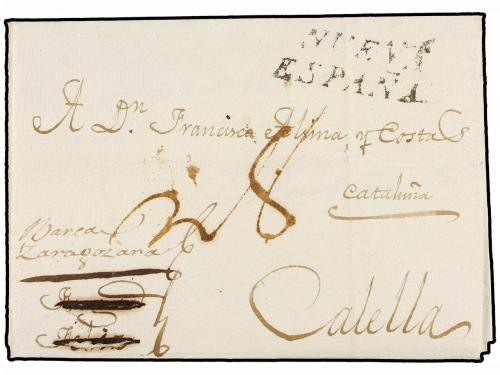 NUEVA
ESPAÑA
A Dn. Francisco Alsina, y Costa
28
Cataluña
Barca
Zaragozana
Calella